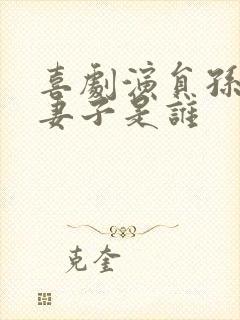 喜劇演員孫
妻子是誰
克奎